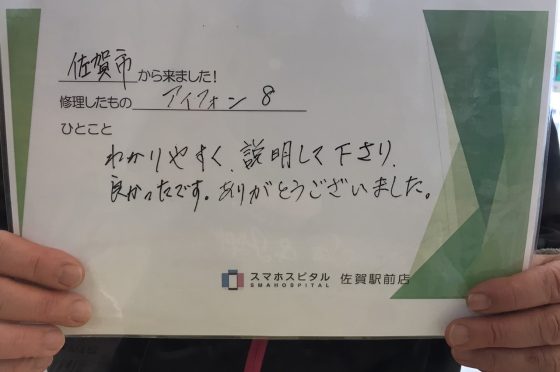 佐賀市から来ました!
修理したもの アイフォン 8
ひとこと
わかりやすく、説明して下さり、
良かったです。ありがとうございました。
スマホスピタル 佐賀駅前店
SMAHOSPITAL